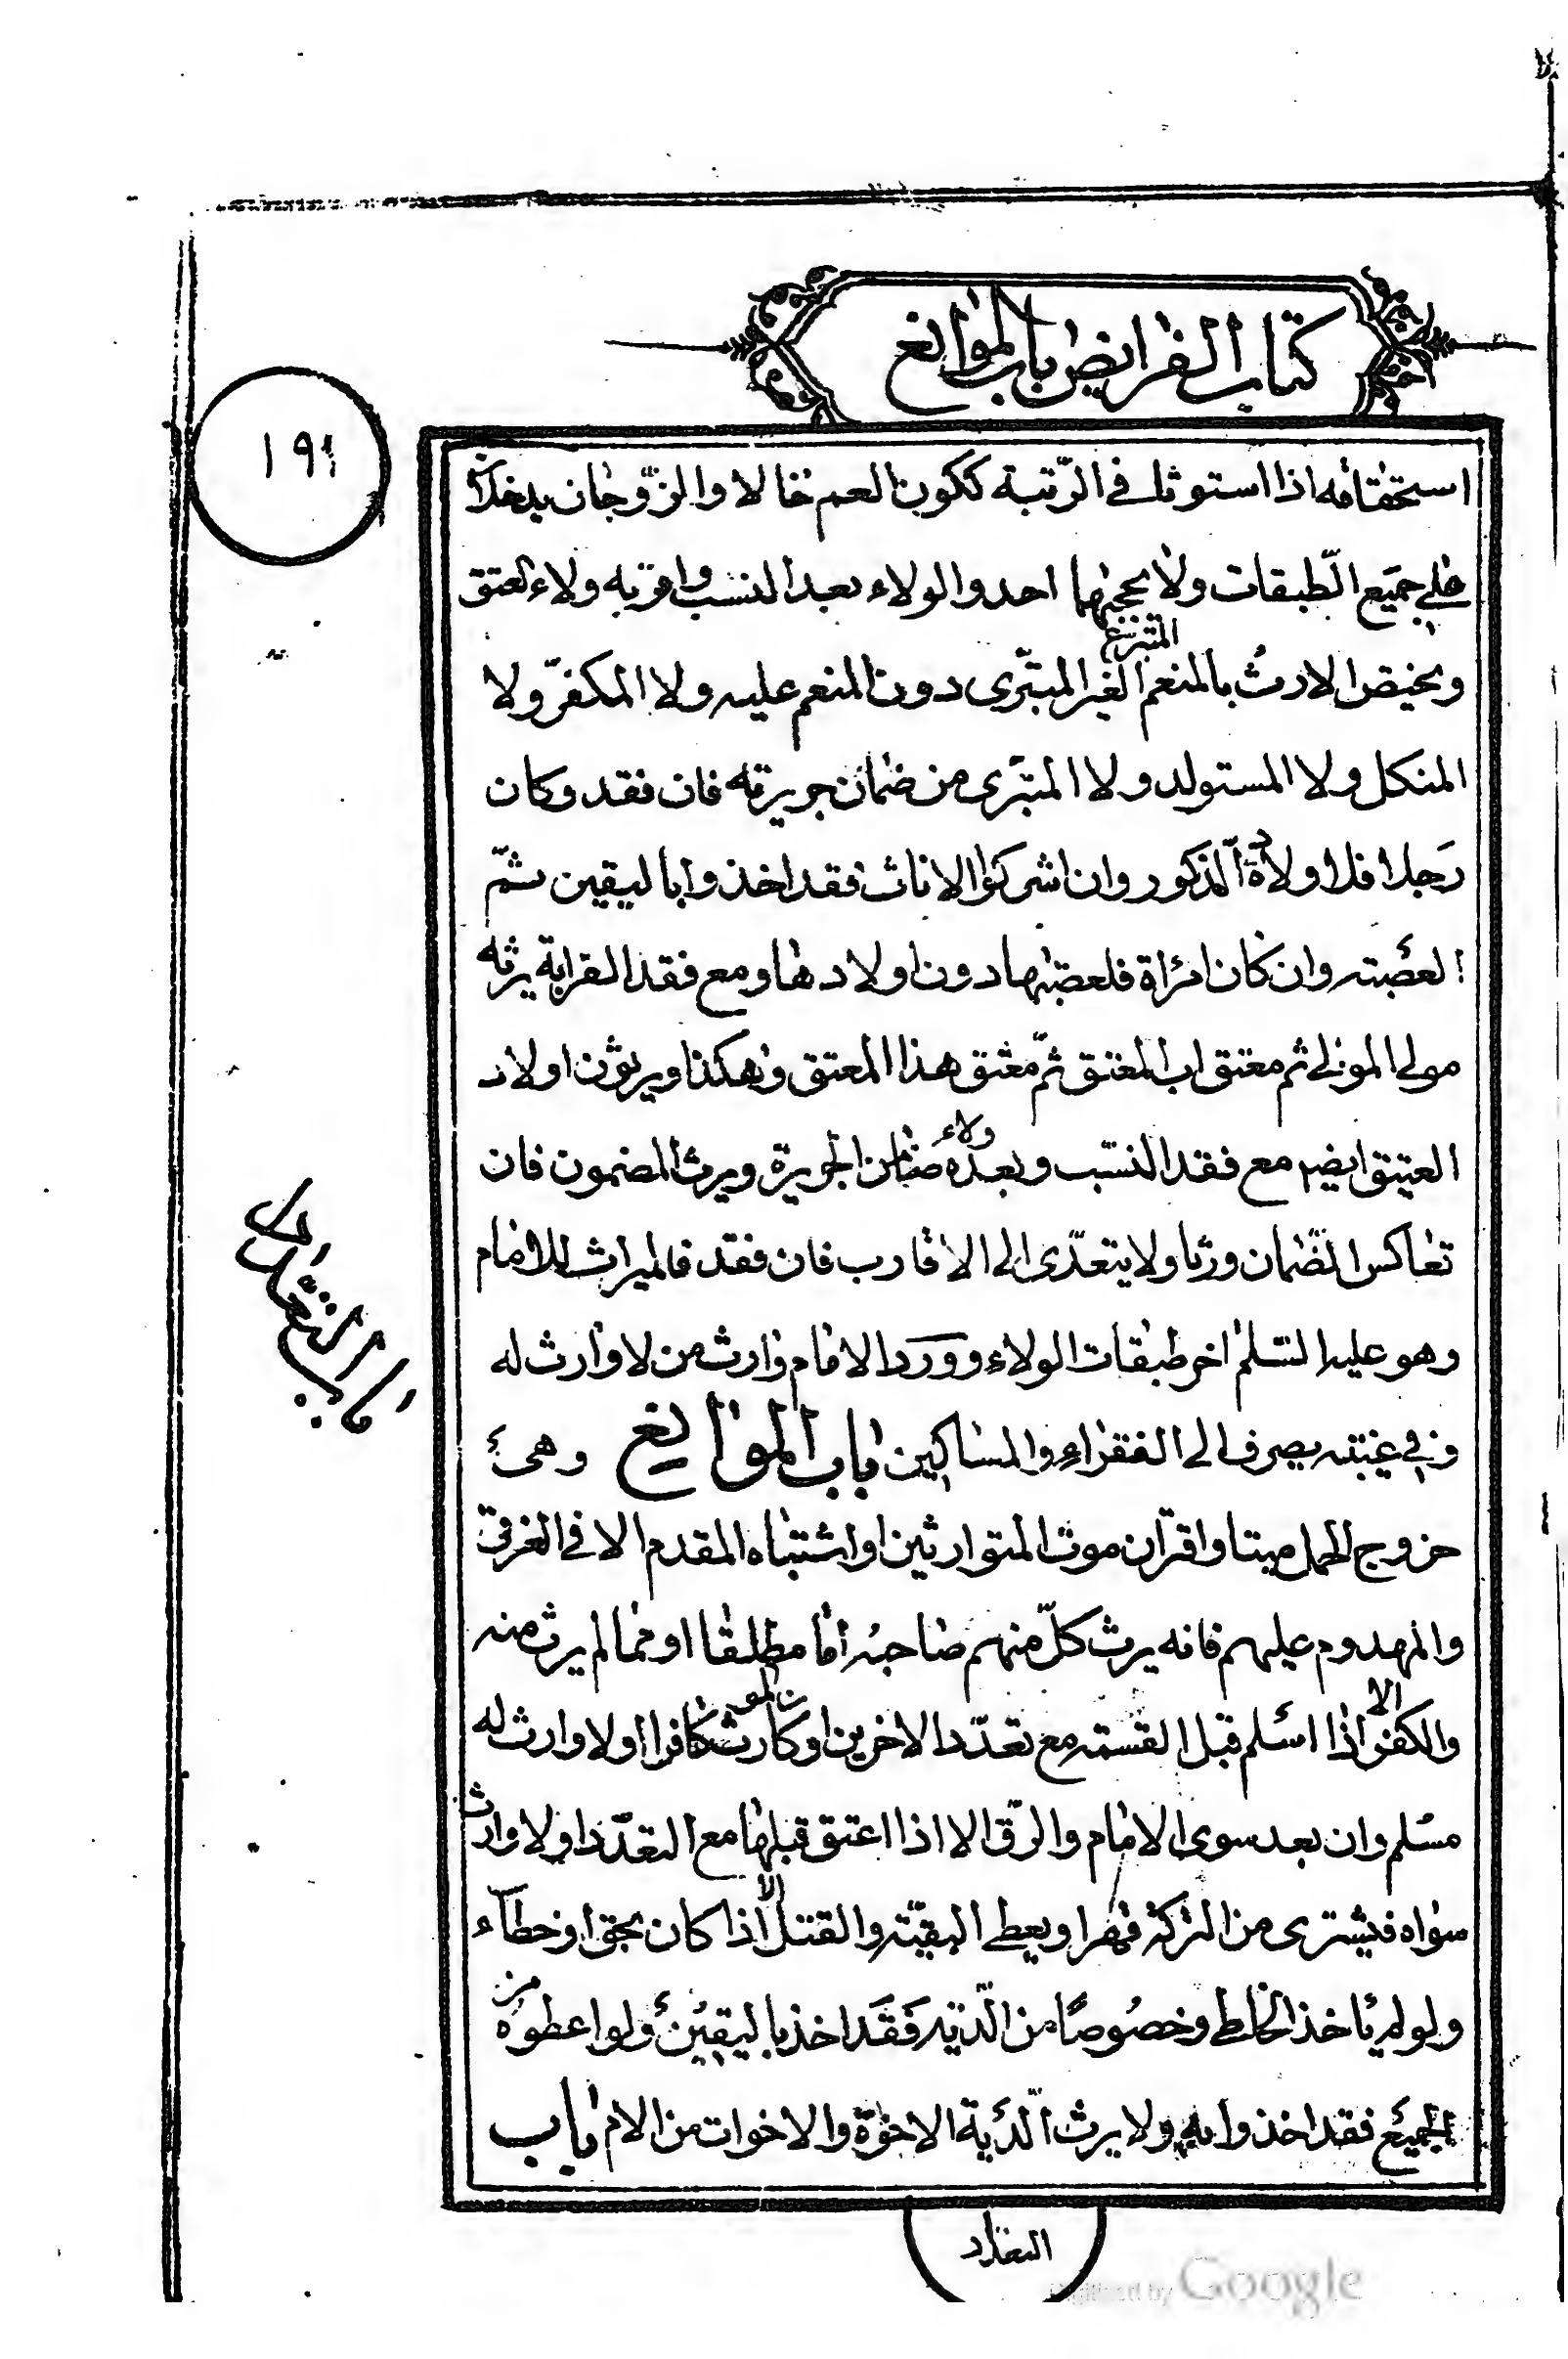 كتاب الفرايض باب الموانع
١٩١
استحقاقه اذا استوتا في الرّتبة ككون العم خالا والزّوجان يدخلان
على جميع الطّبقات ولا يحجبهما احد والولاء بعد النسب واقربه ولاء العتق
ويختص الارث بالمنعم المتبرع الغير المتبرّى دون المنعم عليه ولا المكفّر ولا
المنكل ولا المستولد ولا المتبرّى من ضمان جريرته فان فقد وكان
رجلا فلاولاده الذكور وان اشركوا الاناث فقد اخذوا باليقين ثمّ
لعصبته وان كان امرأة فلعصبتها دون اولادها ومع فقد القرابة يرثه
مولى المولى ثم معتق اب المعتق ثمّ معتق هذا المعتق وهكذا ويرثون اولاد
العتيق ايضا مع فقد النسب وبعده ولاء ضامن الجريرة ويرث المضمون فان
تعاكس الضّمان ورثا ولا يتعدّى الى الاقارب فان فقد فالميراث للامام
وهو عليه السّلم اخر طبقات الولاء وورد الامام وارث من لا وارث له
وفي غيبته يصرف الى الفقراء والمساكين باب الموانع وهى
خروج الحمل ميتا واقتران موت المتوارثين او اشتباه المقدم الا في الغرقى
والمهدوم عليهم فانه يرث كلّ منهم صاحبه امّا مطلقا او مما لم يرث منه
والكفر الا اذا اسلم قبل القسمة مع تعدّد الاخرين او كان المورث كافرا اولا وارث له
مسلم وان بعد سوى الامام والرّق الا اذا اعتق قبلها مع التعدّد اولا وارث
سواه فيشترى من التركة قهرا ويعطى البقيّة والقتل الا اذا كان بحق او خطاء
ولو لم ياخذ الخاطى وخصوصًا من الدّية فقد اخذ باليقين ولو اعطوه من
الجميع فقد اخذوا به ولا يرث الدّية الاخوة والاخوات من الام باب
التعداد
باب التعداد
Digitized by Google